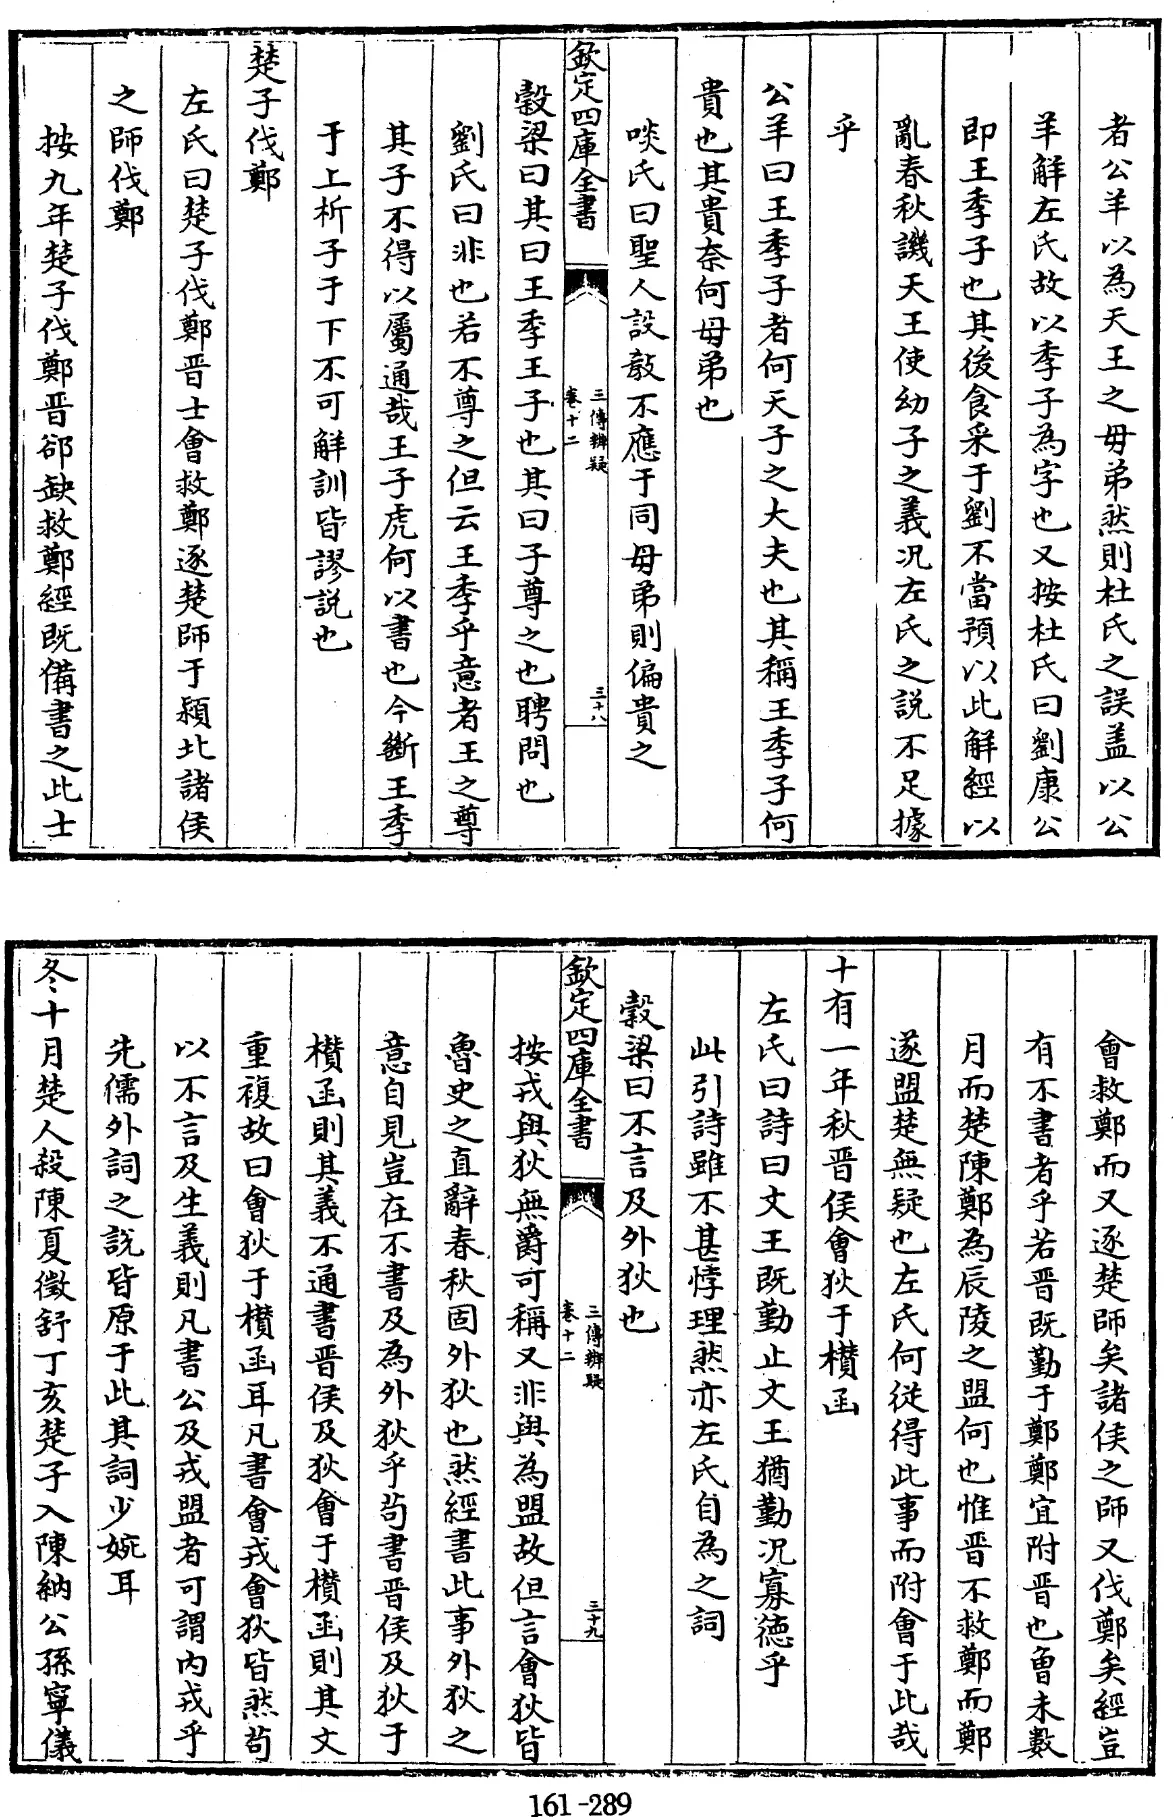 者公羊以為天王之母弟然則杜氏之誤盖以公
羊解左氏故以季子為字也又按杜氏曰劉康公
即王季子也其後食采于劉不當預以此解經以
亂春秋譏天王使幼子之義况左氏之説不足據
乎
公羊曰王季子者何天子之大夫也其稱王季子何
貴也其貴奈何母弟也
啖氏曰聖人設敎不應于同母弟則偏貴之
欽定四庫全書
三傳辨疑
卷十二
三十八
穀梁曰其曰王季王子也其曰子尊之也聘問也
劉氏曰非也若不尊之但云王季乎意者王之尊
其子不得以屬通哉王子虎何以書也今斷王季
于上析子于下不可解訓皆謬説也
楚子伐鄭
左氏曰楚子伐鄭晋士會救鄭逐楚師于潁北諸侯
之師伐鄭
按九年楚子伐鄭晋郤缺救鄭經既備書之此士
會救鄭而又逐楚師矣諸侯之師又伐鄭矣經豈
有不書者乎若晋既勤于鄭鄭宜附晋也㑹未數
月而楚陳鄭為辰陵之盟何也惟晋不救鄭而鄭
遂盟楚無疑也左氏何從得此事而附會于此哉
十有一年秋晋侯會狄于欑函
左氏曰詩曰文王既勤止文王猶勤况寡德乎
此引詩雖不甚悖理然亦左氏自為之詞
穀梁曰不言及外狄也
欽定四庫全書
三傳辨疑
卷十二
三十九
按戎與狄無爵可稱又非與為盟故但言會狄皆
魯史之直辭春秋固外狄也然經書此事外狄之
意自見豈在不書及為外狄乎茍書晋侯及狄于
欑函則其義不通書晋侯及狄會于欑函則其文
重複故曰會狄于欑函耳凡書會戎會狄皆然茍
以不言及生義則凡書公及戎盟者可謂内戎乎
先儒外詞之説皆原于此其詞少婉耳
冬十月楚人殺陳夏徵舒丁亥楚子入陳納公孫寧儀
161-289